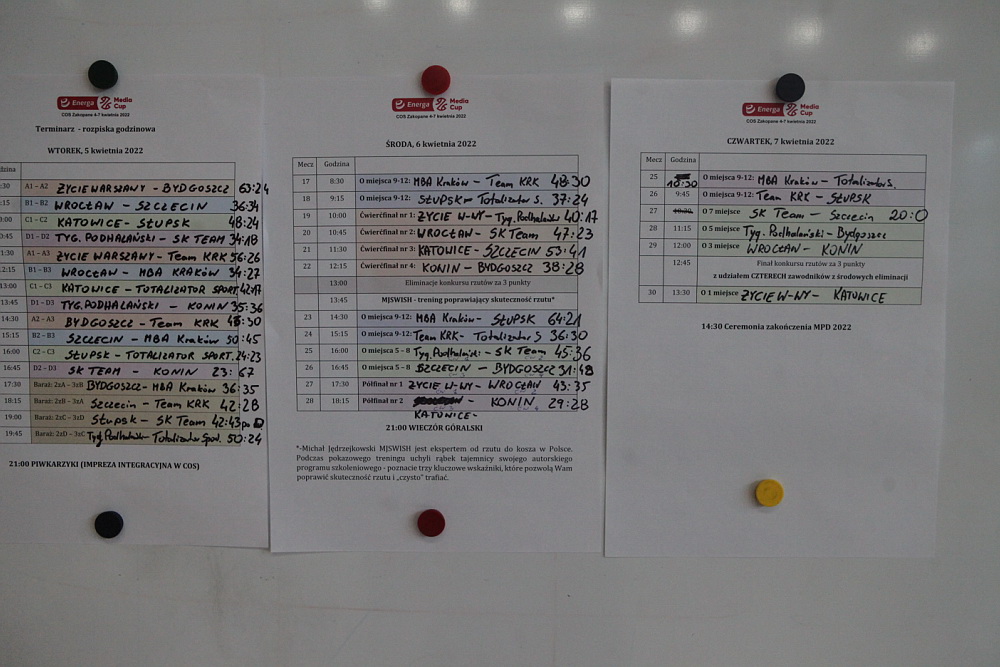 Energa Media Cup
COS Zakopane 4-7 kwietnia 2022
Terminarz - rozpiska godzinowa
WTOREK, 5 kwietnia 2022
dzina
:30 A1 – A2 ŻYCIE WARSZAWY - BYDGOSZCZ 63:24
:15 B1 – B2 WROCŁAW - SZCZECIN 36:34
9:00 C1 – C2 KATOWICE - SŁUPSK 48:24
0:45 D1 – D2 TYG. PODHALAŃSKI - SK TEAM 34:18
1:30 A1 – A3 ŻYCIE WARSZAWY - TEAM KRK 56:26
12:15 B1 – B3 WROCŁAW - MBA KRAKÓW 34:27
13:00 C1 – C3 KATOWICE - TOTALIZATOR SPORT. 42:17
13:45 D1 – D3 TYG. PODHALAŃSKI - KONIN 35:36
14:30 A2 – A3 BYDGOSZCZ - Team KRK 48:30
15:15 B2 – B3 SZCZECIN - MBA Kraków 50:45
16:00 C2 – C3 SŁUPSK - TOTALIZATOR SPORT. 24:23
16:45 D2 – D3 SK TEAM - KONIN 23:67
17:30 Baraż: 2xA – 3xB BYDGOSZCZ - MBA Kraków 36:35
18:15 Baraż: 2xB – 3xA Szczecin - Team KRK 42:28
19:00 Baraż: 2xC – 3xD Słupsk - SK Team 42:43 po D
19:45 Baraż: 2xD – 3xC Tyg. Podhalański - Totalizator Spod. 50:24
21:00 PIWKARZYKI (IMPREZA INTEGRACYJNA W COS)
Energa Media Cup
COS Zakopane 4-7 kwietnia 2022
ŚRODA, 6 kwietnia 2022
Mecz Godzina
17 8:30 O miejsca 9-12: MBA Kraków - Team KRK 48:30
18 9:15 O miejsca 9-12: SŁUPSK - Totalizator S. 37:24
19 10:00 Ćwierćfinał nr 1: ŻYCIE W-WY - Tyg. Podhalański 40:17
20 10:45 Ćwierćfinał nr 2: WROCŁAW - SK TEAM 47:23
21 11:30 Ćwierćfinał nr 3: KATOWICE - SZCZECIN 53:41
22 12:15 Ćwierćfinał nr 4: KONIN - BYDGOSZCZ 38:28
13:00 Eliminacje konkursu rzutów za 3 punkty
13:45 MJSWISH - trening poprawiający skuteczność rzutu*
23 14:30 O miejsca 9-12: MBA Kraków - SŁUPSK 64:21
24 15:15 O miejsca 9-12: Team KRK - Totalizator S 36:30
25 16:00 O miejsca 5 – 8 Tyg. Podhalański - SK Team 45:36
26 16:45 O miejsca 5 – 8 SZCZECIN - BYDGOSZCZ 31:48
27 17:30 Półfinał nr 1 ŻYCIE W-WY - WROCŁAW 43:35
28 18:15 Półfinał nr 2 KATOWICE - KONIN 29:28
21:00 WIECZÓR GÓRALSKI
*-Michał Jędrzejkowski MJSWISH jest ekspertem od rzutu do kosza w Polsce.
Podczas pokazowego treningu uchyli rąbek tajemnicy swojego autorskiego
programu szkoleniowego - poznacie trzy kluczowe wskaźniki, które pozwolą Wam
poprawić skuteczność rzutu i „czysto" trafiać.
Energa Media Cup
COS Zakopane 4-7 kwietnia 2022
CZWARTEK, 7 kwietnia 2022
Mecz Godzina
25 10:30 O miejsca 9-12: MBA Kraków - Totalizator S.
26 9:45 O miejsca 9-12: Team KRK - SŁUPSK
27 10:30 O 7 miejsce SK Team - Szczecin 20:0
28 11:15 O 5 miejsce Tyg. Podhalański - Bydgoszcz
29 12:00 O 3 miejsce WROCŁAW - KONIN
12:45 Finał konkursu rzutów za 3 punkty
z udziałem CZTERECH zawodników z środowych eliminacji
30 13:30 O 1 miejsce ŻYCIE W-WY - KATOWICE
14:30 Ceremonia zakończenia MPD 2022